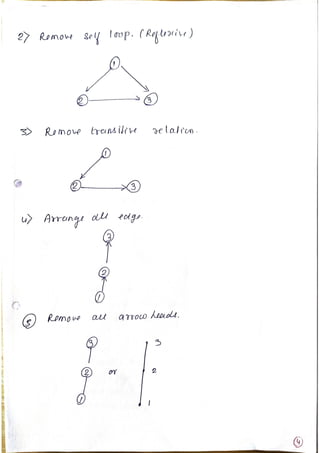 2) Remove self loop. (Reflexive)
1
2 3
3) Remove transitive relation.
1
2 3
4) Arrange all edge.
3
2
1
5 Remove all arrow heads.
3 3
2 or 2
1 1
4